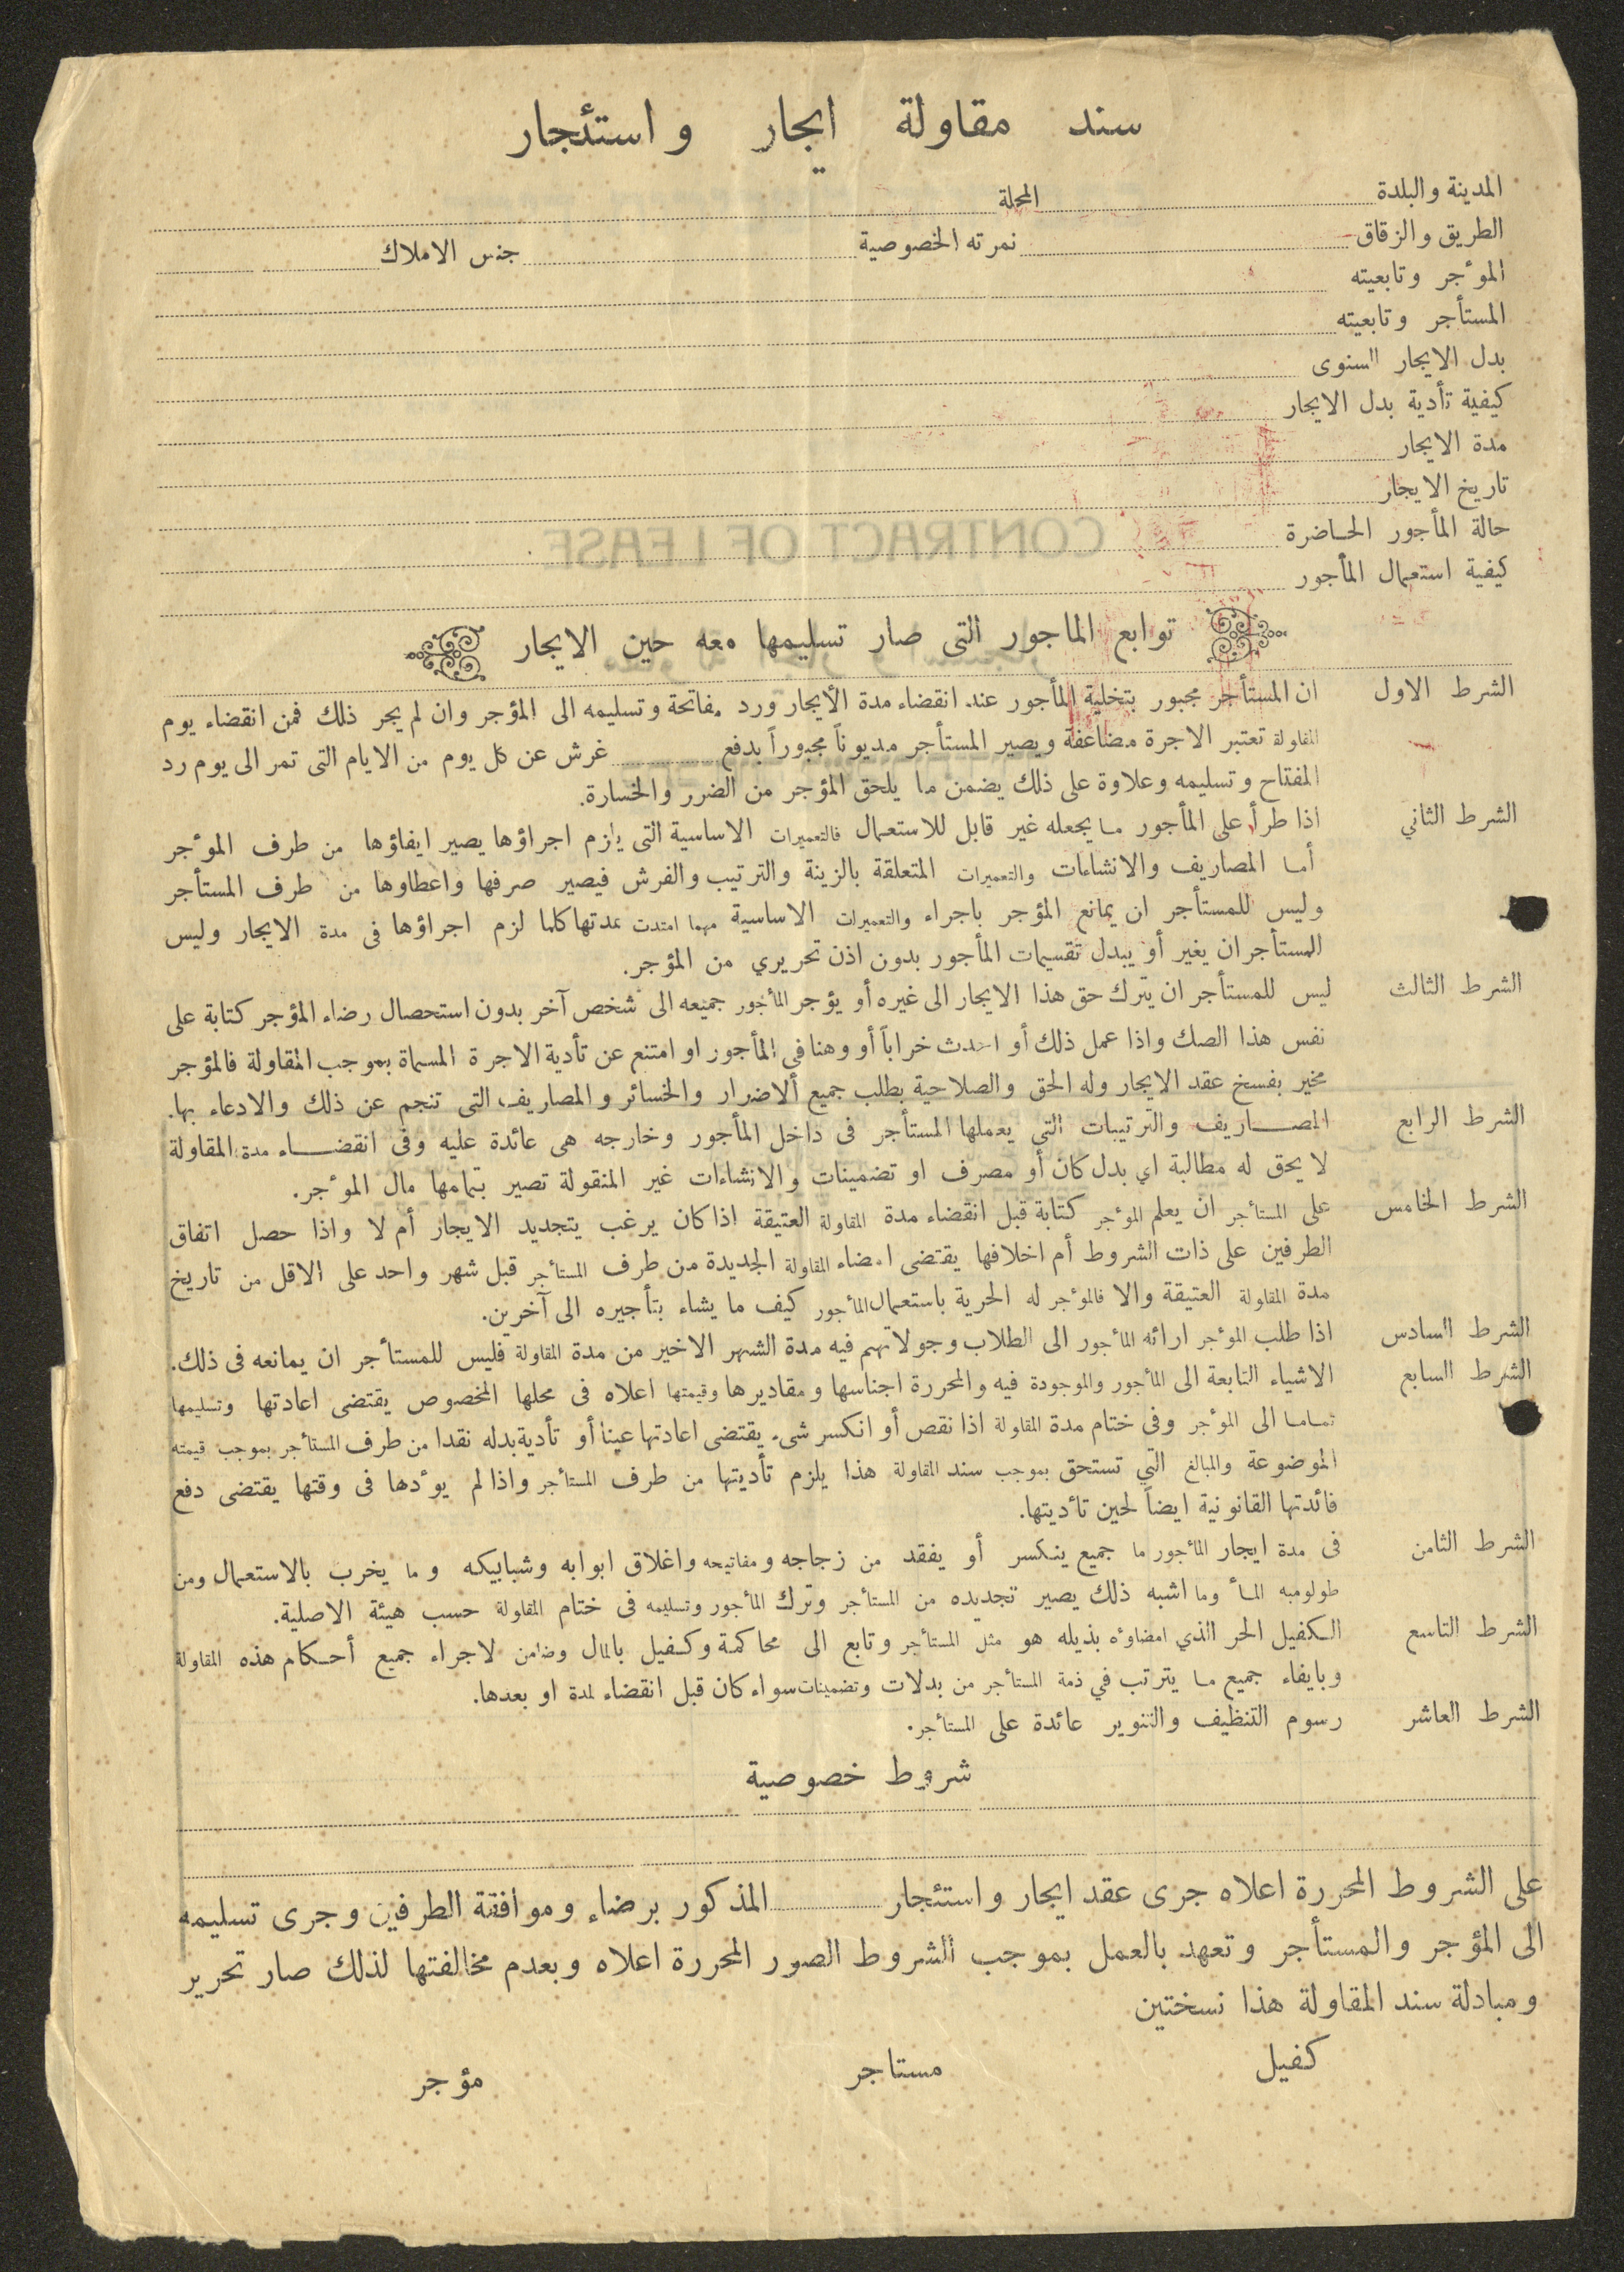 سند مقاولة ايجار واستئجار
المدينة والبلدة المحلة
الطريق والزقاق نمرته الخصوصية جنس الاملاك
الموٴجر وتابعيته
المستأجر وتابعيته
بدل الايجار السنوى
كيفية تأدية بدل الايجار
مدة الايجار
تاريخ الايجار
حالة المأجور الحاضرة
كيفية استعمال المأجور
CONTRACT OF LEASE
توابع الماجور التى صار تسليمها معه حين الايجار
الشرط الاول ان المستأجر مجبور بتخلية المأجور عند انقضاء مدة الأيجار ورد مفاتحة وتسليمه الى المؤجر وان لم يجر ذلك فمن انقضاء يوم
المقاولة تعتبر الاجرة مضاعفة ويصير المستأجر مديوناً مجبوراً بدفع غرش عن كل يوم من الايام التى تمر الى يوم رد
المفتاح وتسليمه وعلاوة على ذلك يضمن ما يلحق المؤجر من الضرر والخسارة.
الشرط الثاني اذا طرأ على المأجور ما يجعله غير قابل للاستعمال فالتعميرات الاساسية التى يلزم اجراؤها يصير ايفاؤها من طرف الموٴجر
أما المصاريف والانشاءات والتعميرات المتعلقة بالزينة والترتيب والفرش فيصير صرفها واعطاوها من طرف المستأجر
وليس للمستأجر ان يمانع المؤجر باجراء والتعميرات الاساسية مهما امتدت مدتها كلما لزم اجراؤها فى مدة الايجار وليس
للمستأجر ان يغير أو يبدل تقسيمات المأجور بدون اذن تحريري من المؤجر.
الشرط الثالث ليس للمستأجر ان يترك حق هذا الايجار الى غيره أو يؤجر المأجور جميعه الى شخص آخر بدون استحصال رضاء المؤجر كتابة على
نفس هذا الصك واذا عمل ذلك أو احدث خراباً أو وهنا في المأجور او امتنع عن تأدية الاجرة المسماة بموجب المقاولة فالمؤجر
مخير بفسخ عقد الايجار وله الحق والصلاحية بطلب جميع ألاضرار والخسائر والمصاريف التى تنجم عن ذلك والادعاء بها.
الشرط الرابع المصاريف والترتيبات التي يعملها المستأجر فى داخل المأجور وخارجه هى عائدة عليه وفى انقضاء مدة المقاولة
لا يحق له مطالبة اي بدل كان أو مصرف او تضمينات والانشاءات غير المنقولة تصير بتمامها مال الموٴجر.
الشرط الخامس على المستأجر ان يعلم الموٴجر كتابة قبل انقضاء مدة المقاولة العتيقة اذا كان يرغب يتجديد الايجار أم لا واذا حصل اتفاق
الطرفين على ذات الشروط أم اخلافها يقتضى امضاء المقاولة الجديدة من طرف المستأجر قبل شهر واحد على الاقل من تاريخ
مدة المقاولة العتيقة والا فالموٴجر له الحرية باستعمال المأجور كيف ما يشاء بتأجيره الى آخرين.
الشرط السادس اذا طلب الموٴجر ارائه المأجور الى الطلاب وجولاتهم فيه مدة الشهر الاخير من مدة المقاولة فليس للمستأجر ان يمانعه فى ذلك.
الشرط السابع الاشياء التابعة الى المأجور والموجودة فيه والمحررة اجناسها ومقاديرها وقيمتها اعلاه فى محلها المخصوص يقتضى اعادتها وتسليمها
تماما الى الموٴجر وفى ختام مدة المقاولة اذا نقص أو انكسر شىء يقتضى اعادتها عيناً أو تأدية بدله نقدا من طرف المستأجر بموجب قيمته
الموضوعة والمبالغ التي تستحق بموجب سند المقاولة هذا يلزم تأديتها من طرف المستأجر واذا لم يوٴدها فى وقتها يقتضى دفع
فائدتها القانونية ايضاً لحين تأديتها.
الشرط الثامن فى مدة ايجار المأجور ما جميع ينكسر أو يفقد من زجاجه ومفاتيحه واغلاق ابوابه وشبابيكه وما يخرب بالاستعمال ومن
طولومبه المأ وما اشبه ذلك يصير تجديده من المستأجر وترك المأجور وتسليمه فى ختام المقاولة حسب هيئة الاصلية.
الشرط التاسع الكفيل الحر الذي امضاوٴه بذيله هو مثل المستأجر وتابع الى محاكمة وكفيل بالمال وضامن لاجراء جميع أحكام هذه المقاولة
وبايفاء جميع ما يترتب في ذمة المستأجر من بدلات وتضمينات سواء كان قبل انقضاء لمدة او بعدها.
الشرط العاشر رسوم التنظيف والتنوير عائدة على المستأجر.
شروط خصوصية
على الشروط المحررة اعلاه جرى عقد ايجار واستئجار المذكور برضاء وموافقة الطرفين وجرى تسليمه
الى المؤجر والمستأجر وتعهد بالعمل بموجب الشروط الصور المحررة اعلاه وبعدم مخالفتها لذلك صار تحرير
ومبادلة سند المقاولة هذا نسختين
كفيل مستاجر مؤجر